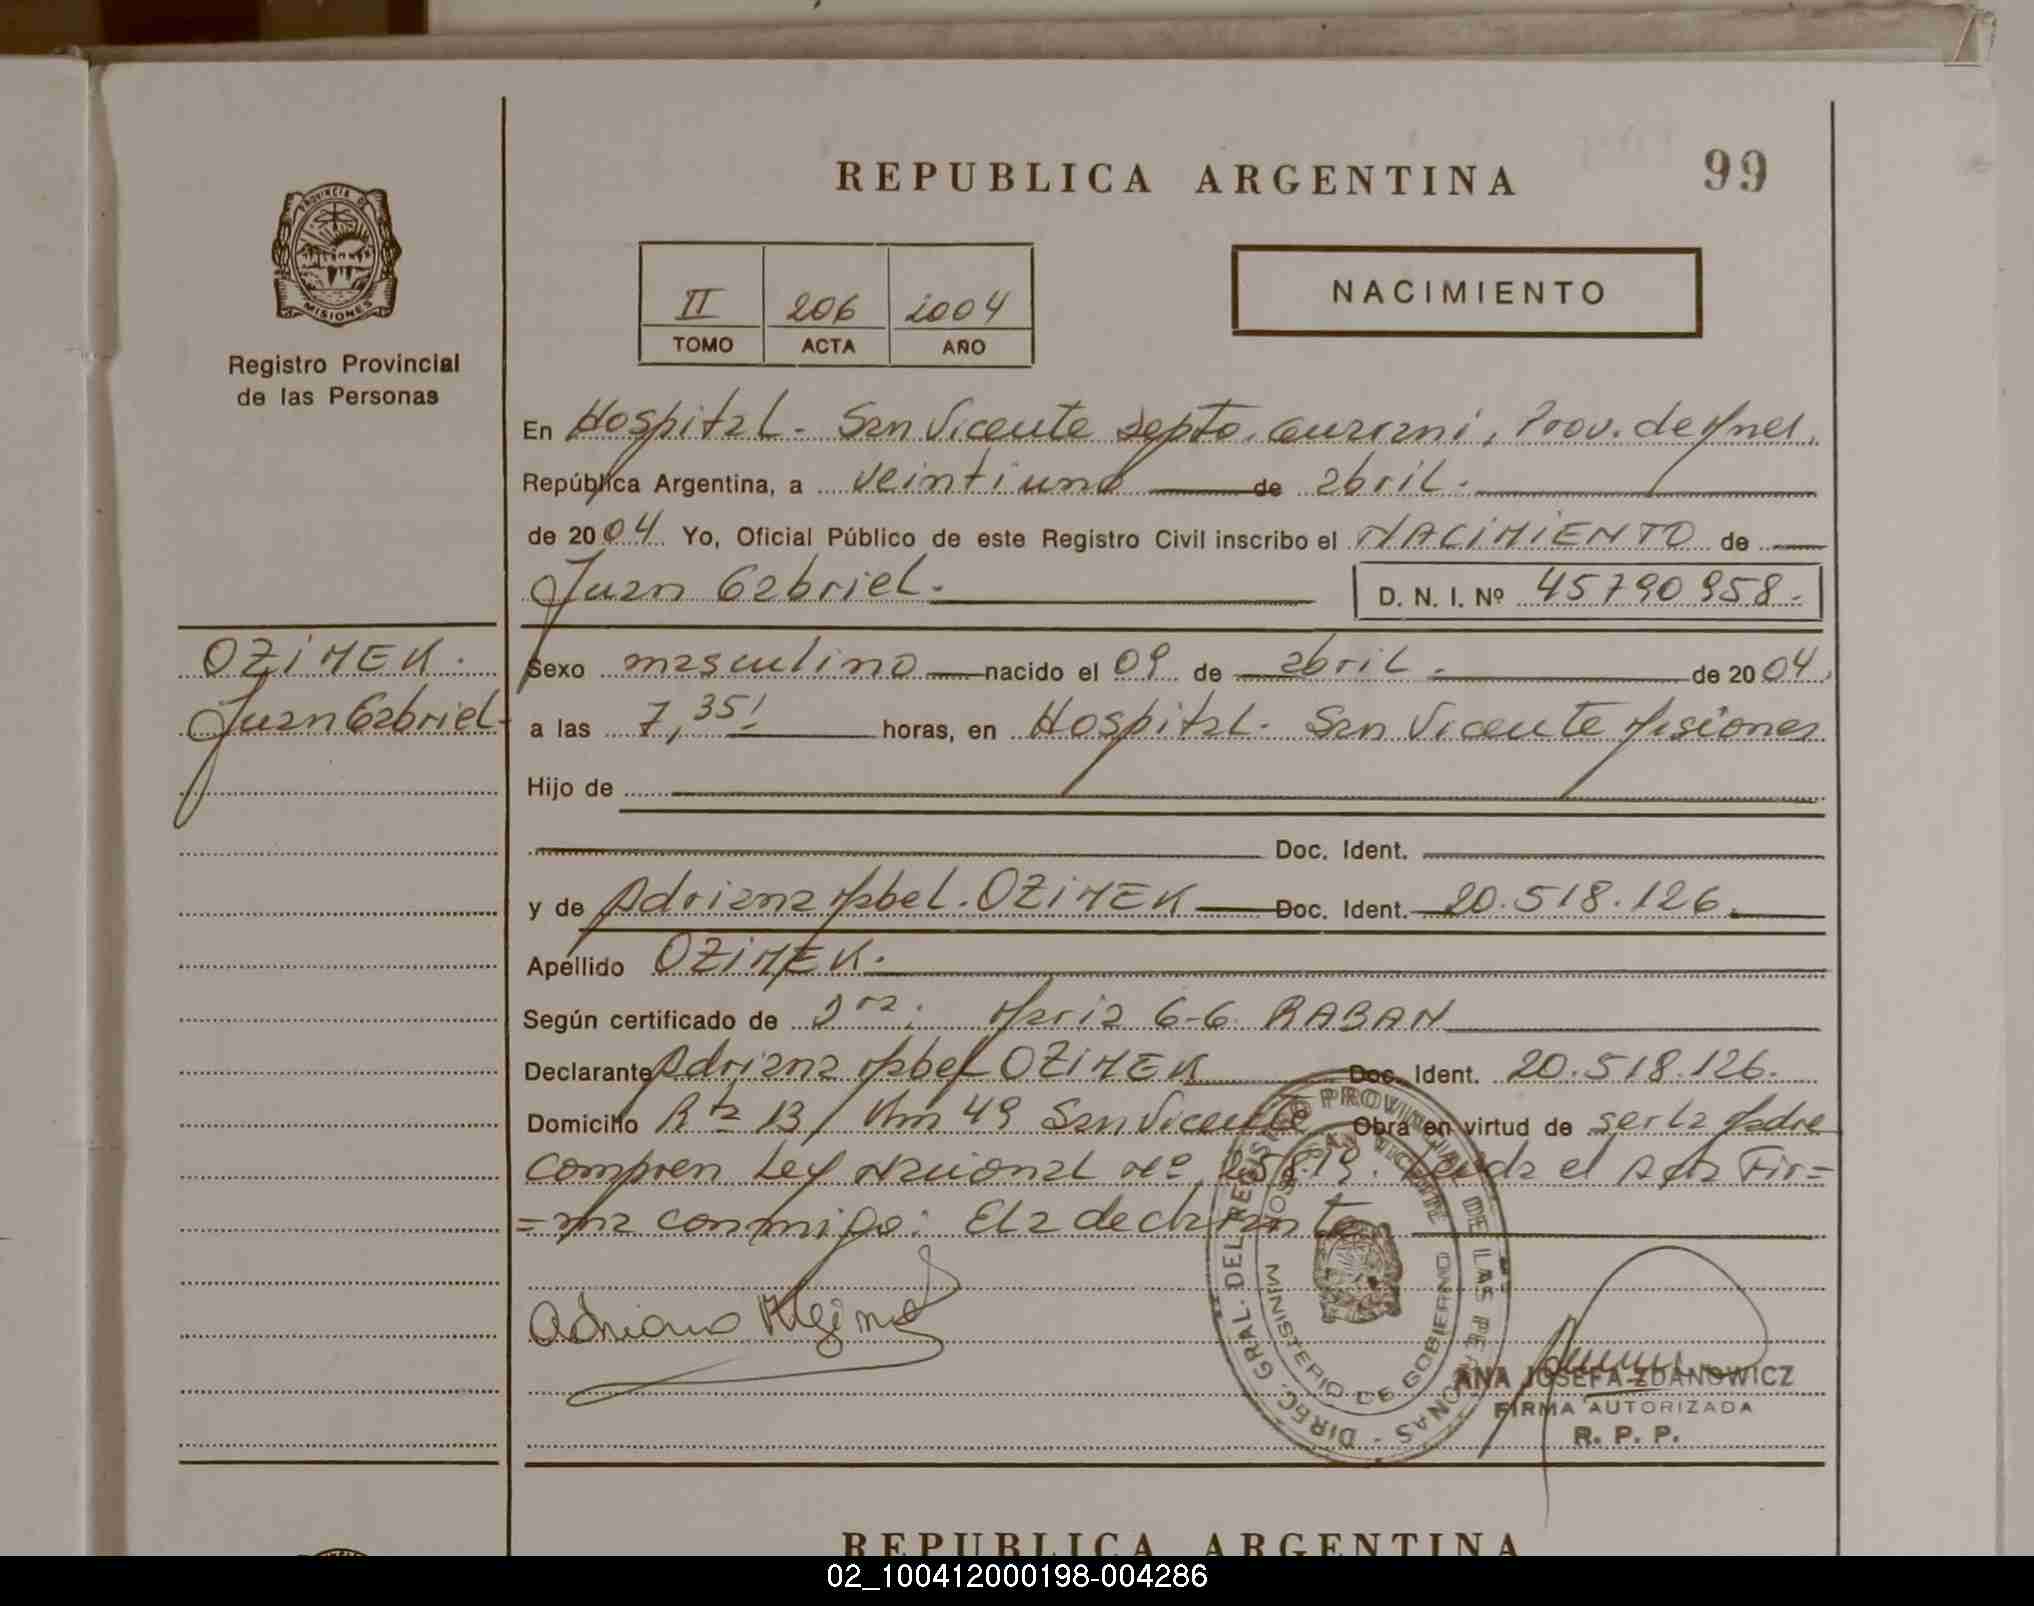 REPUBLICA ARGENTINA
99
PROVINCIA DE
MISIONES
Registro Provincial
de las Personas
II 206 2004
TOMO ACTA AÑO
NACIMIENTO
En Hospital - San Vicente Depto. Guarani, Prov. de Mnes.
República Argentina, a veintiuno de abril.
de 2004 Yo, Oficial Público de este Registro Civil inscribo el NACIMIENTO de
Juan Gabriel.
D. N. I. Nº 45790958.
OZIMEK.
Juan Gabriel
Sexo masculino nacido el 09 de abril. de 2004.
a las 7,35' horas, en Hospital - San Vicente Misiones
Hijo de
Doc. Ident.
y de Adriana Mabel. OZIMEK Doc. Ident. 20.518.126.
Apellido OZIMEK.
Según certificado de Dra: Maria G-G. RABAN
Declarante Adriana Mabel OZIMEK Doc. Ident. 20.518.126.
Domicilio Rta 13 / Km 49 San Vicente Obra en virtud de ser la Madre
Ley Nacional Nº Leyda el Acta Fir=
=ma conmigo: El a declarante
Adriana
DIREC. GRAL. DEL REGISTRO PROVINCIAL DE LAS PERSONAS
HOSP. SAN VICENTE
MINISTERIO DE GOBIERNO
ANA JOSEFA ZDANOWICZ
FIRMA AUTORIZADA
R. P. P.
REPUBLICA ARGENTINA
02_100412000198-004286